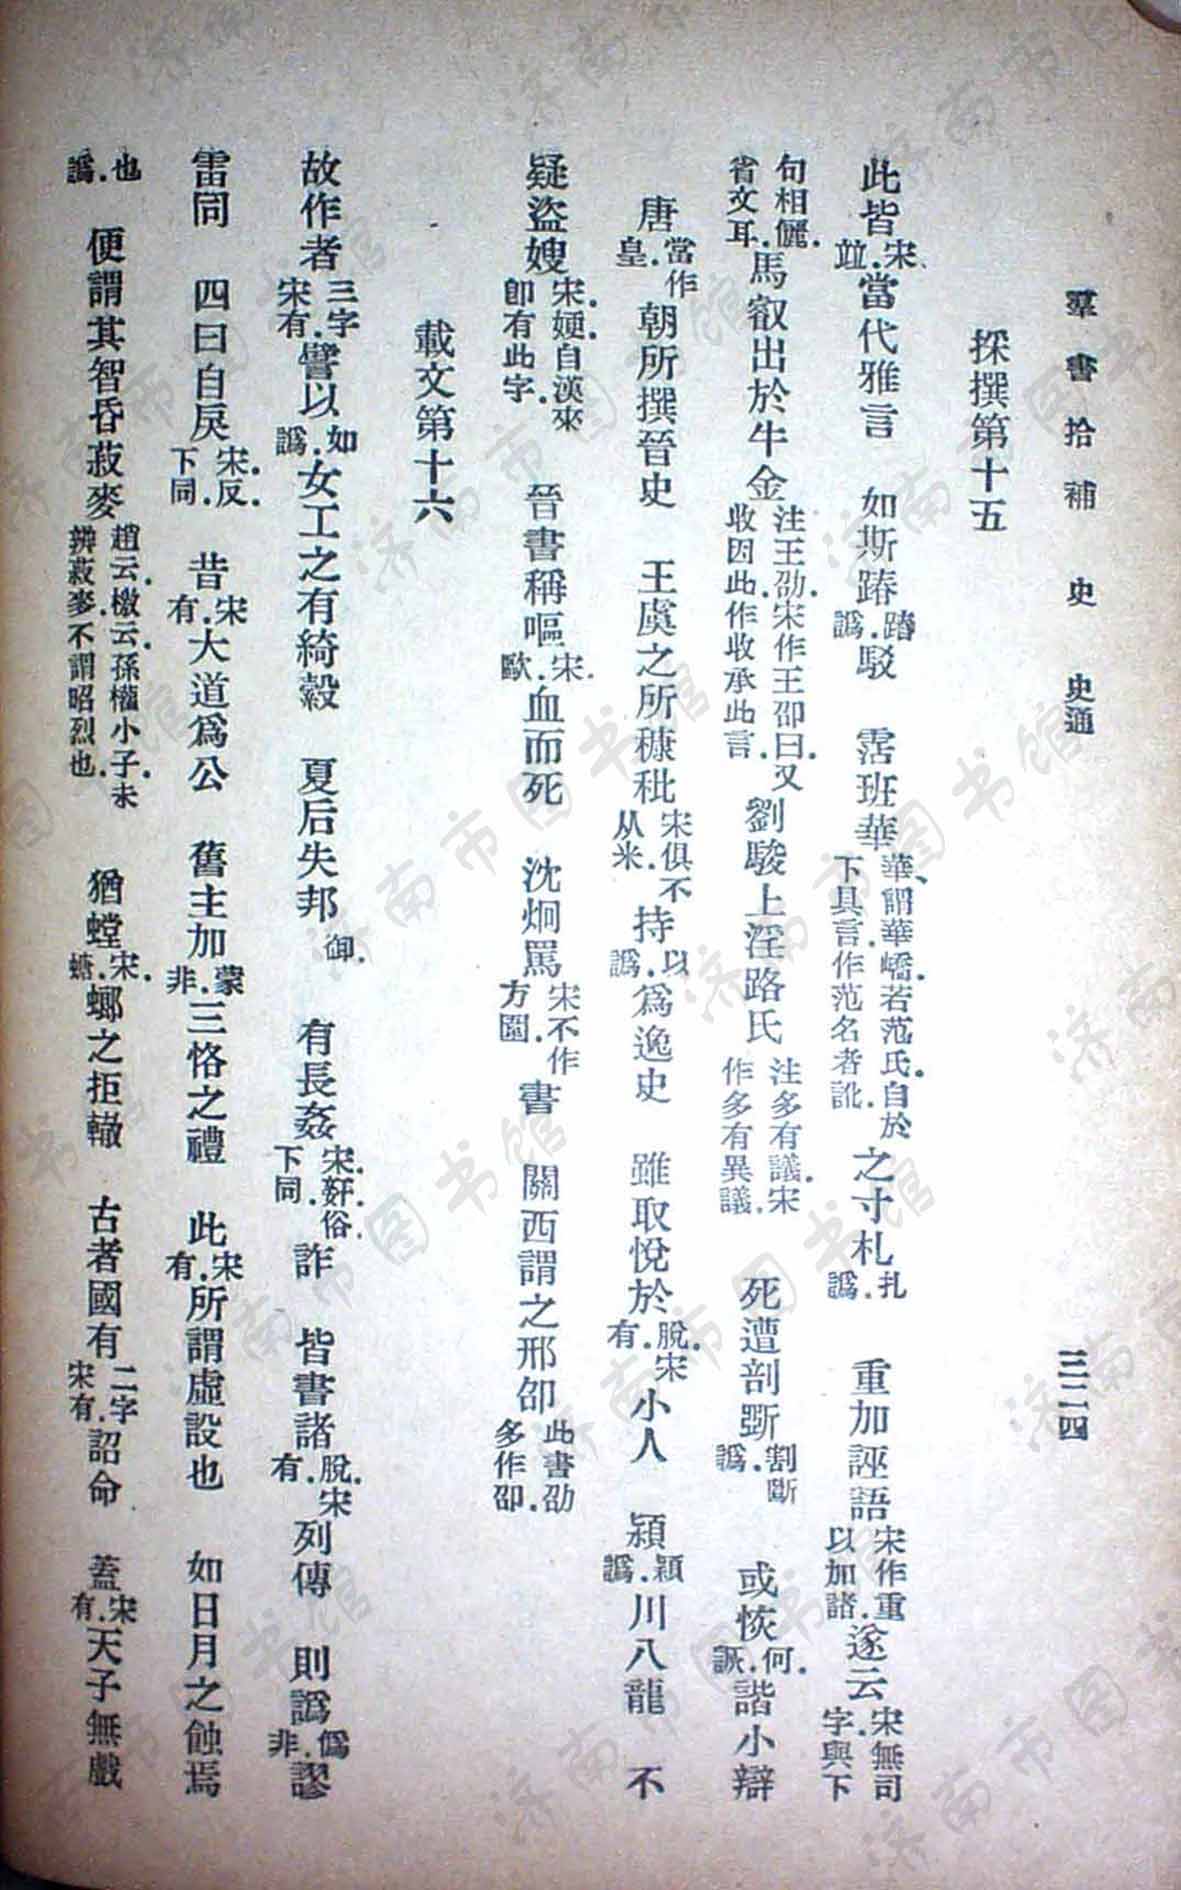 羣書拾補　史　史通　三二四
採撰第十五
此皆宋竝.當代雅言　如斯踳踏譌.駁　霑班華華謂華嶠.若范氏.自於下具言.作范名者訛.之寸札扎譌.　重加誣語宋作重以加諸.遂云宋無司字.與下
句相儷.省文耳.馬叡出於牛金注王劭.宋作王卲曰.又收因此.作收承此言.劉駿上淫路氏注多有議.宋作多有異議.　死遭剖斲割斷譌.　或恢何.詼.諧小辯
唐當作皇.朝所撰晉史　王虞之所糠秕宋俱不从米.持以譌.爲逸史　雖取悅於脫.宋有.小人　潁穎譌.川八龍　不
疑盜嫂宋.㛐.自漢來卽有此字.　晉書稱嘔宋.歐.血而死　沈炯罵宋不作方圍.書　關西謂之邢卲此書劭多作卲.
載文第十六
故作者三字宋有.譬以如譌.女工之有綺縠　夏后失邦御.　有長姦宋.姧.俗.下同.詐　皆書諸脫.宋有.列傳　則譌僞非.謬
雷同　四曰自戾宋.反.下同.　昔宋有.大道爲公　舊主加蒙非.三恪之禮　此宋有.所謂虛設也　如日月之蝕焉
也譌.便謂其智昏菽麥趙云.檄云.孫權小子.未辨菽麥.不謂昭烈也.　猶螳宋.螗.螂之拒轍　古者國有二字宋有.詔命　蓋宋有.天子無戲